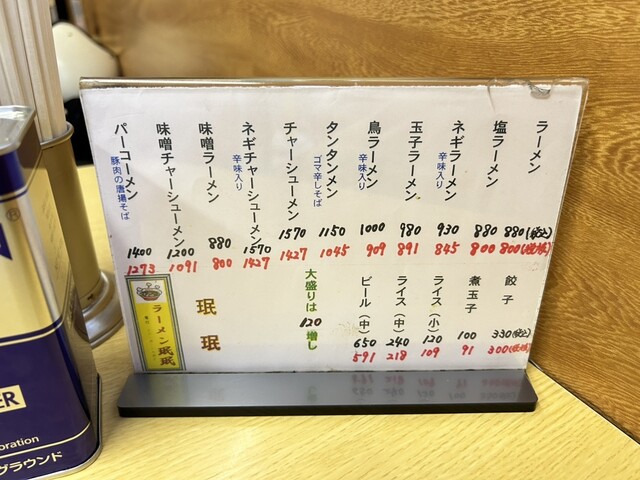 ラーメン 880(税込) 800(税抜)
塩ラーメン 880 800
ネギラーメン 辛味入り 930 845
玉子ラーメン 980 891
鳥ラーメン 辛味入り 1000 909
タンタンメン ゴマ辛しそば 1150 1045
チャーシューメン 1570 1427
ネギチャーシューメン 辛味入り 1570 1427
味噌ラーメン 880 800
味噌チャーシューメン 1200 1091
パーコーメン 豚肉の唐揚そば 1400 1273
餃子 330(税込) 300(税抜)
煮玉子 100 91
ライス(小) 120 109
ライス(中) 240 218
ビール(中) 650 591
大盛りは 120 増し
珉珉
ラーメン珉珉
ER
oration
グラウンド